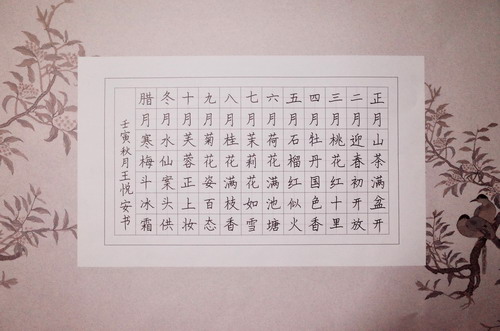 正月山茶满盆开
二月迎春初开放
三月桃花红十里
四月牡丹国色香
五月石榴红似火
六月荷花满池塘
七月茉莉花如雪
八月桂花满枝香
九月菊花姿百态
十月芙蓉正上妆
冬月水仙案头供
腊月寒梅斗冰霜
壬寅秋月王悦安书